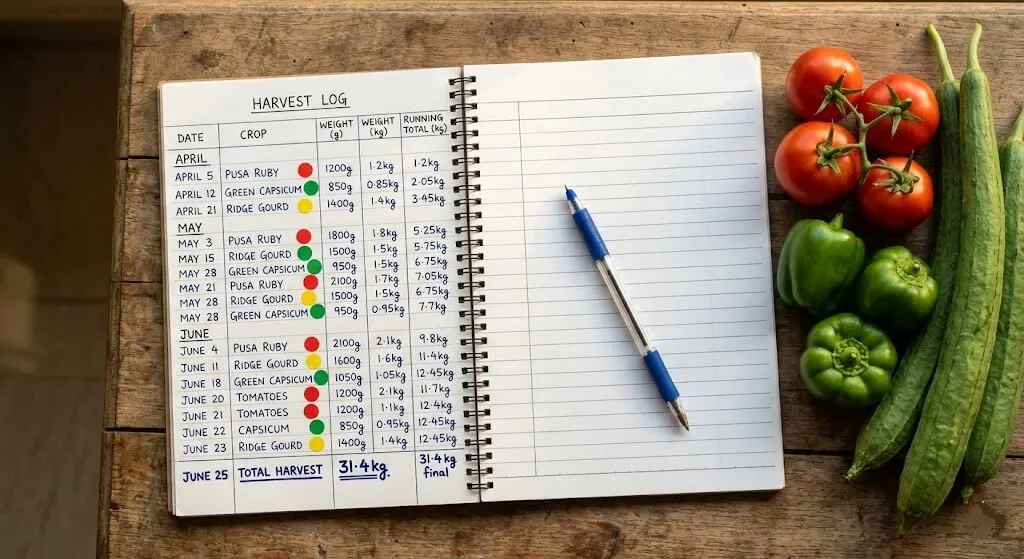 HARVEST LOG
DATE CROP WEIGHT (g) WEIGHT (kg) RUNNING TOTAL (kg)
APRIL
APRIL 5 PUSA RUBY 1200g 1.2kg 1.2kg
APRIL 12 GREEN CAPSICUM 850g 0.85kg 2.05kg
APRIL 21 RIDGE GOURD 1400g 1.4kg 3.45kg
MAY
MAY 3 PUSA RUBY 1800g 1.8kg 5.25kg
MAY 15 RIDGE GOURD 1500g 1.5kg 5.75kg
MAY 28 GREEN CAPSICUM 950g 1.5kg 6.75kg
MAY 21 PUSA RUBY 2100g 1.7kg 7.05kg
MAY 28 RIDGE GOURD 1500g 1.5kg 6.75kg
MAY 28 GREEN CAPSICUM 950g 0.95kg 7.7kg
JUNE
JUNE 4 PUSA RUBY 2100g 2.1kg 9.8kg
JUNE 11 RIDGE GOURD 1600g 1.6kg 11.4kg
JUNE 18 GREEN CAPSICUM 1050g 1.05kg 12.45kg
JUNE 20 TOMATOES 1200g 2.1kg 11.7kg
JUNE 21 TOMATOES 1200g 1.1kg 12.4kg
JUNE 22 CAPSICUM 850g 0.95kg 12.45kg
JUNE 23 RIDGE GOURD 1400g 1.4kg 12.45kg
JUNE 25 TOTAL HARVEST 31.4kg. 31.4kg final